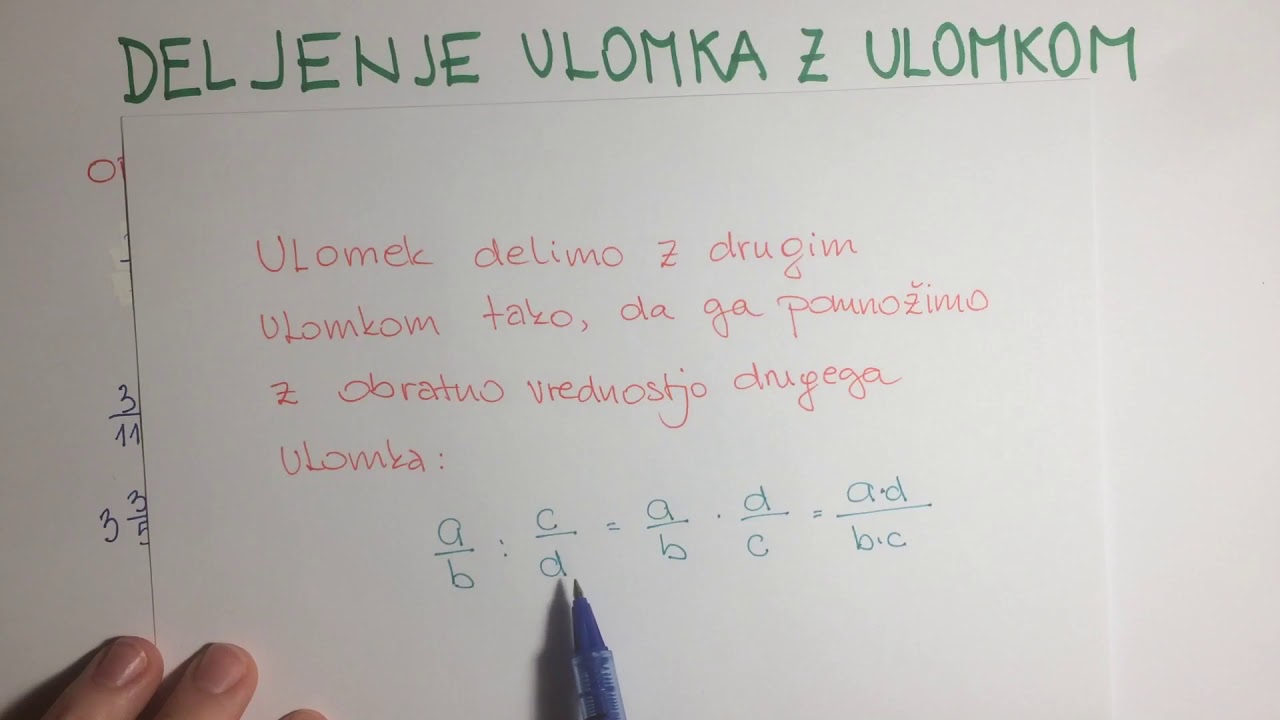 DELJENJE ULOMKA Z ULOMKOM
Ulomek delimo z drugim
ulomkom tako, da ga pomnožimo
z obratno vrednostjo drugega
ulomka:
a/b : c/d = a/b · d/c = a·d/b·c
3/11
3 3/5